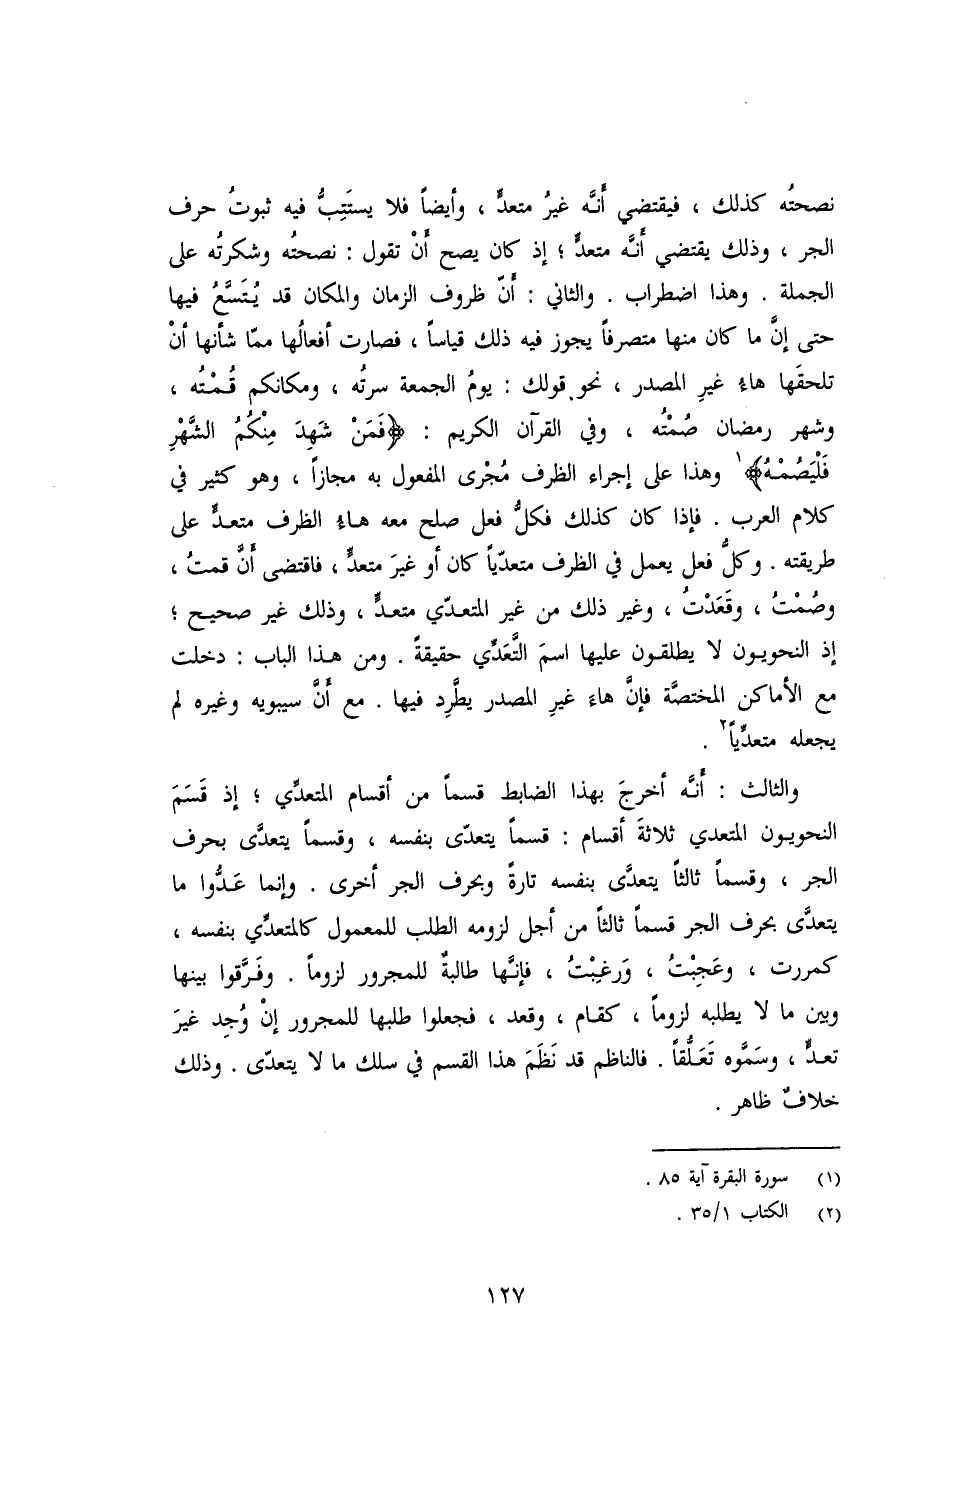 نصحتُه كذلك ، فيقتضي أَنَّه غيرُ متعدٍّ ، وأيضاً فلا يستَتِبُّ فيه ثبوتُ حرف
الجر ، وذلك يقتضي أَنَّه متعدٍّ ؛ إذ كان يصح أَنْ تقول : نصحتُه وشكرتُه على
الجملة . وهذا اضطراب . والثاني : أَنّ ظروف الزمان والمكان قد يُتَسَّعُ فيها
حتى إنَّ ما كان منها متصرفاً يجوز فيه ذلك قياساً ، فصارت أفعالُها ممّا شأنها أنْ
تلحقَها هاءُ غيرِ المصدر ، نحو قولك : يومُ الجمعة سرتُه ، ومكانكم قُمْتُه ،
وشهر رمضان صُمْتُه ، وفي القرآن الكريم : ﴿فَمَنْ شَهِدَ مِنْكُمُ الشَّهْرِ
فَلْيَصُمْهُ﴾١ وهذا على إجراء الظرف مُجْرى المفعول به مجازاً ، وهو كثير في
كلام العرب . فإذا كان كذلك فكلُّ فعل صلح معه هاءُ الظرف متعدٍّ على
طريقته . وكلُّ فعل يعمل في الظرف متعدّياً كان أو غيرَ متعدٍّ ، فاقتضى أَنَّ قمتُ ،
وصُمْتُ ، وقَعَدْتُ ، وغير ذلك من غير المتعدّي متعدٍّ ، وذلك غير صحيح ؛
إذ النحويون لا يطلقون عليها اسمَ التَّعَدِّي حقيقةً . ومن هذا الباب : دخلت
مع الأماكن المختصَّة فإنَّ هاءَ غيرِ المصدر يطَّرِد فيها . مع أَنَّ سيبويه وغيره لم
يجعله متعدِّياً٢ .
والثالث : أَنَّه أخرجَ بهذا الضابط قسماً من أقسام المتعدِّي ؛ إذ قَسَمَ
النحويون المتعدي ثلاثةَ أقسام : قسماً يتعدّى بنفسه ، وقسماً يتعدَّى بحرف
الجر ، وقسماً ثالثاً يتعدَّى بنفسه تارةً وبحرف الجر أخرى . وإنما عَدُّوا ما
يتعدَّى بحرف الجر قسماً ثالثاً من أجل لزومه الطلب للمعمول كالمتعدِّي بنفسه ،
كمررت ، وعَجِبْتُ ، وَرغِبْتُ ، فإنَّها طالبةٌ للمجرور لزوماً . وفَرَّقوا بينها
وبين ما لا يطلبه لزوماً ، كقام ، وقعد ، فجعلوا طلبها للمجرور إنْ وُجِد غيرَ
تعدٍّ ، وسَمَّوه تَعَلُّقاً . فالناظم قد نَظَمَ هذا القسم في سلك ما لا يتعدّى . وذلك
خلافٌ ظاهر .
(١) سورة البقرة آية ٨٥ .
(٢) الكتاب ٣٥/١ .
١٢٧